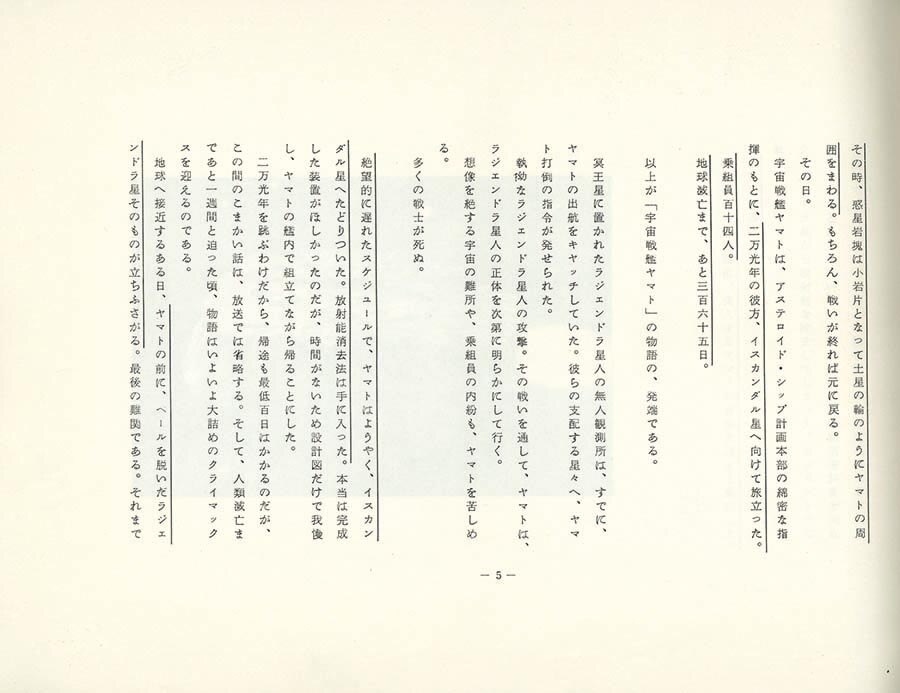 その時、惑星岩塊は小岩片となって土星の輪のようにヤマトの周
囲をまわる。もちろん、戦いが終れば元に戻る。
その日。
宇宙戦艦ヤマトは、アステロイド・シップ計画本部の綿密な指
揮のもとに、二万光年の彼方、イスカンダル星へ向けて旅立った。
乗組員百十四人。
地球滅亡まで、あと三百六十五日。
以上が「宇宙戦艦ヤマト」の物語の、発端である。
冥王星に置かれたラジェンドラ星人の無人観測所は、すでに、
ヤマトの出航をキャッチしていた。彼らの支配する星々へ、ヤマ
ト打倒の指令が発せられた。
執拗なラジェンドラ星人の攻撃。その戦いを通して、ヤマトは、
ラジェンドラ星人の正体を次第に明らかにして行く。
想像を絶する宇宙の難所や、乗組員の内紛も、ヤマトを苦しめ
る。
多くの戦士が死ぬ。
絶望的に遅れたスケジュールで、ヤマトはようやく、イスカン
ダル星へたどりついた。放射能消去法は手に入った。本当は完成
した装置がほしかったのだが、時間がないため設計図だけで我慢
し、ヤマトの艦内で組立てながら帰ることにした。
二万光年を跳ぶわけだから、帰途も最低百日はかかるのだが、
この間のこまかい話は、放送では省略する。そして、人類滅亡ま
であと一週間と迫った頃、物語はいよいよ大詰めのクライマック
スを迎えるのである。
地球へ接近するある日、ヤマトの前に、ベールを脱いだラジェ
ンドラ星そのものが立ちふさがる。最後の難関である。それまで
— 5 —